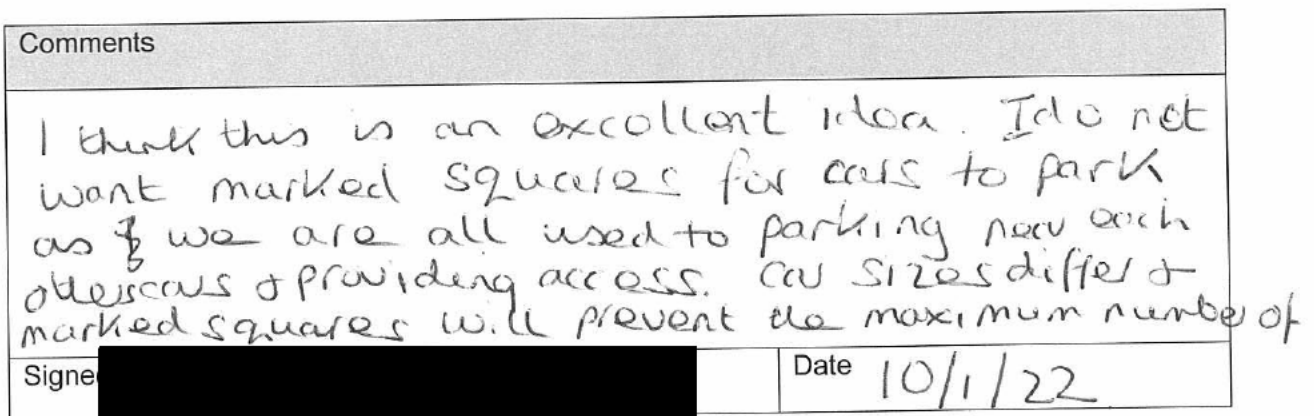 Comments
I think this is an excellent idea. I do not
want marked squares for cars to park
as we are all used to parking near each
others cars + providing access. Car sizes differ +
marked squares will prevent the maximum number of
Signe
Date 10/1/22